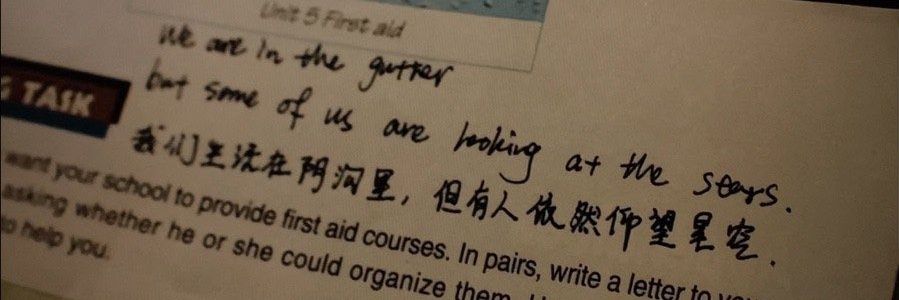 Unit 5 First aid
We are in the gutter
but some of us are looking at the stars.
G TASK
我们生活在阴沟里，但有人依然仰望星空.
want your school to provide first aid courses. In pairs, write a letter to
asking whether he or she could organize them.
to help you.